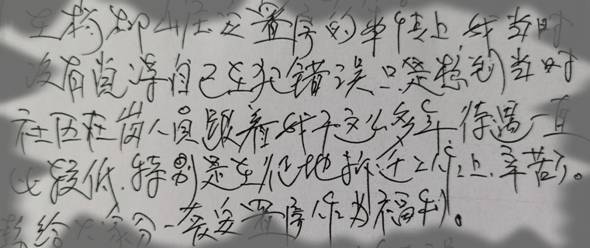 在杨柳小区安置房的事情上，我当时
没有意识自己在犯错误，只是想到当时
社区在岗人员跟着我干这么多年，待遇一直
比较低，特别是在征地拆迁工作上，辛苦了。
想给大家分一套安置房作为福利。